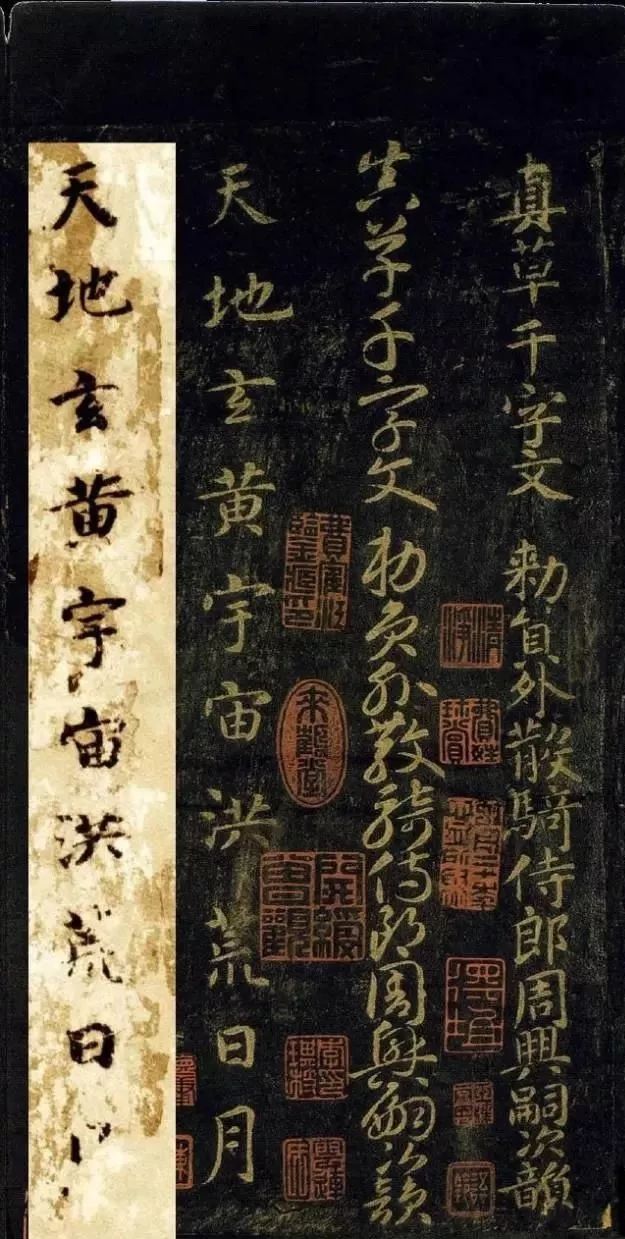 真草千字文 勑員外散騎侍郎周興嗣次韻
真草千字文 勑員外散騎侍郎周興嗣次韻
天地玄黄宇宙洪荒日月
天地玄黄宇宙洪荒日